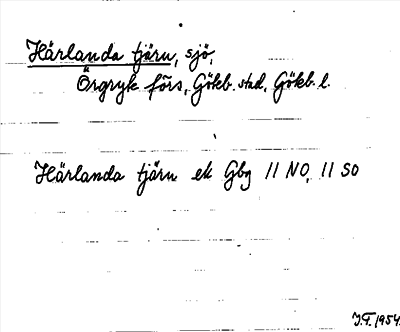 Härlanda tjärn, sjö,
Örgryte förs, Götb. stad, Götb. l.
Härlanda tjärn ek Gbg 11 NO, 11 SO
J.F. 1954.